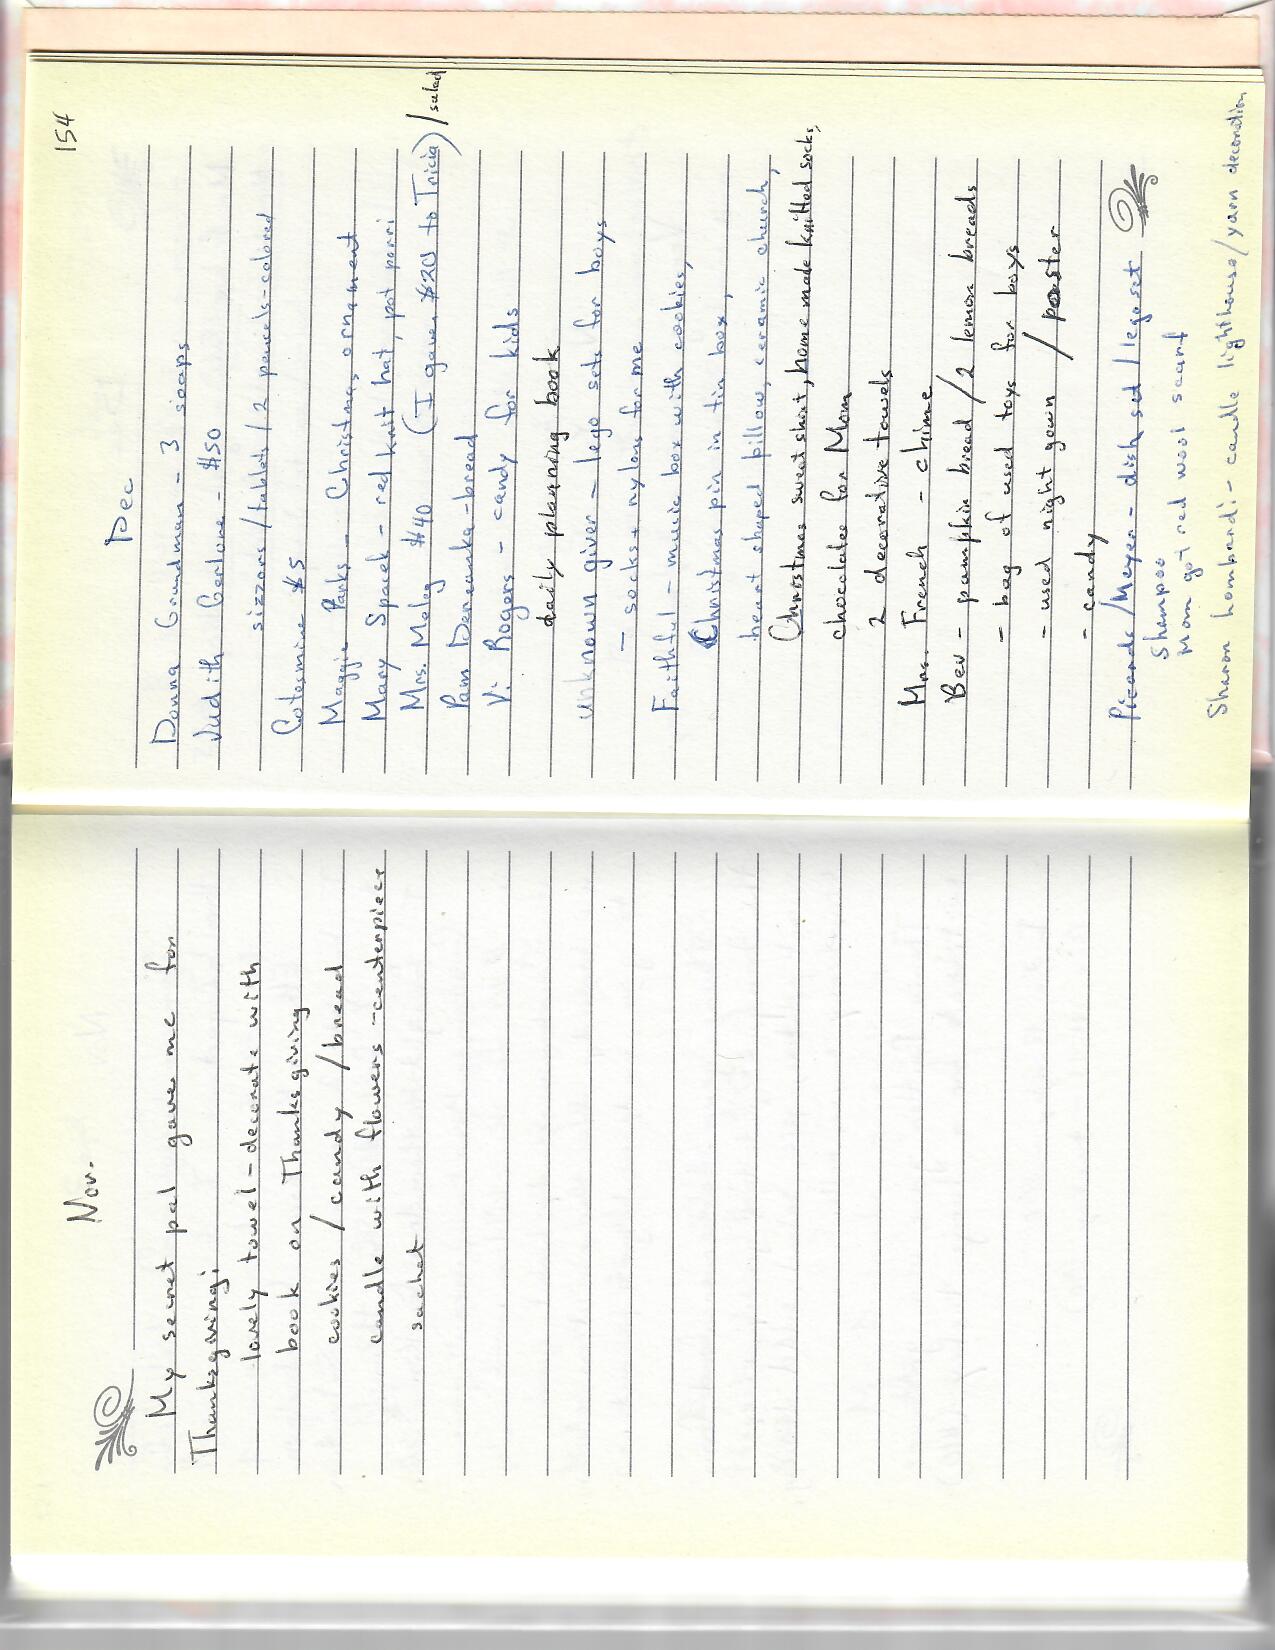 Nov.
My secret pal gave me for
Thanksgiving;
lovely towel-decorate with
book on Thanksgiving
cookies / candy / bread
candle with flowers-centerpiece
sachet
154
Dec
Donna Grundman - 3 soaps
Judith Gerlone - $50
sizzors / tablets / 2 pencils-colored
Cotosmine $5
Maggie Parks - Christmas ornament
Mary Spacek - red knit hat, pot porri
Mrs. Moleg $40 (I gave $20 to Tricia) / salad
Pam -bread
Vi Rogers - candy for kids
daily planning book
unknown giver - lego sets for boys
- socks + nylons for me
Faithful - music box with cookies,
Christmas pin in tin box,
heart shaped pillow, ceramic church,
Christmas sweat shirt, home made knitted socks,
chocolate for Mom
2 decorative towels
Mrs. French - chime
Bev - pumpkin bread / 2 lemon breads
- bag of used toys for boys
- used night gown /
- candy
Picards / Meyer - dish set / lego set
Shampoo
Mom got red wool scarf
Sharon Lombardi - candle lighthouse / yarn decoration